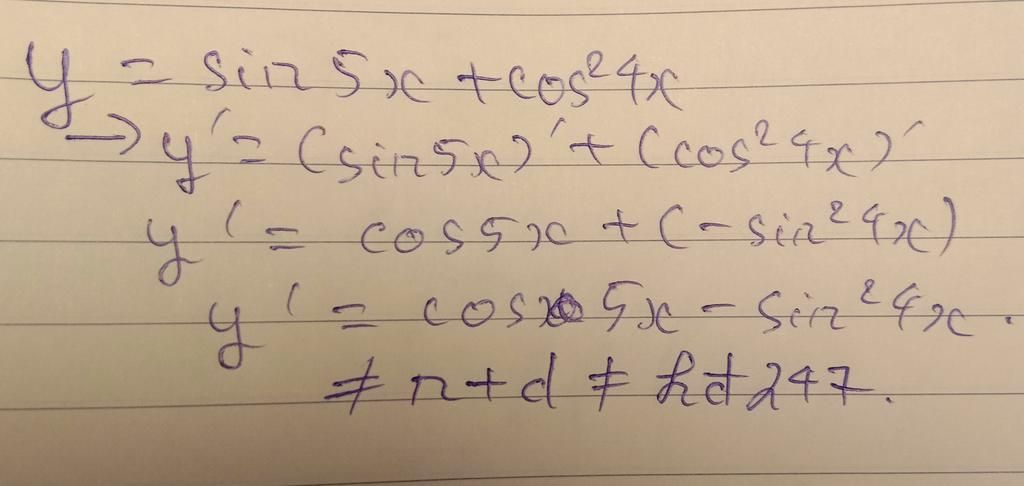 y = sin 5x + cos²4x
→ y' = (sin5x)' + (cos²4x)'
y' = cos5x + (-sin²4x)
y' = cos 5x - sin²4x.
≠ n+d ≠ hd247.